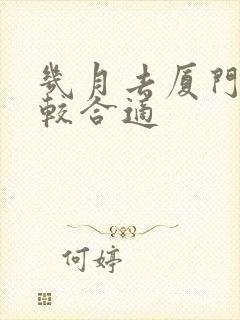 幾月去厦門
較合適
何婷